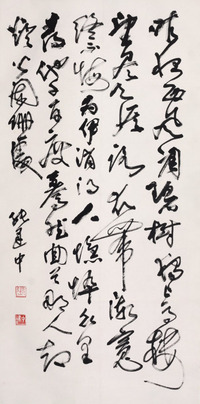 昨夜西风凋碧树独上高樓
望尽天涯路衣带渐宽
终不悔为伊消得人憔悴众里
寻他千百度蓦然回首那人却
灯火阑珊处 建中